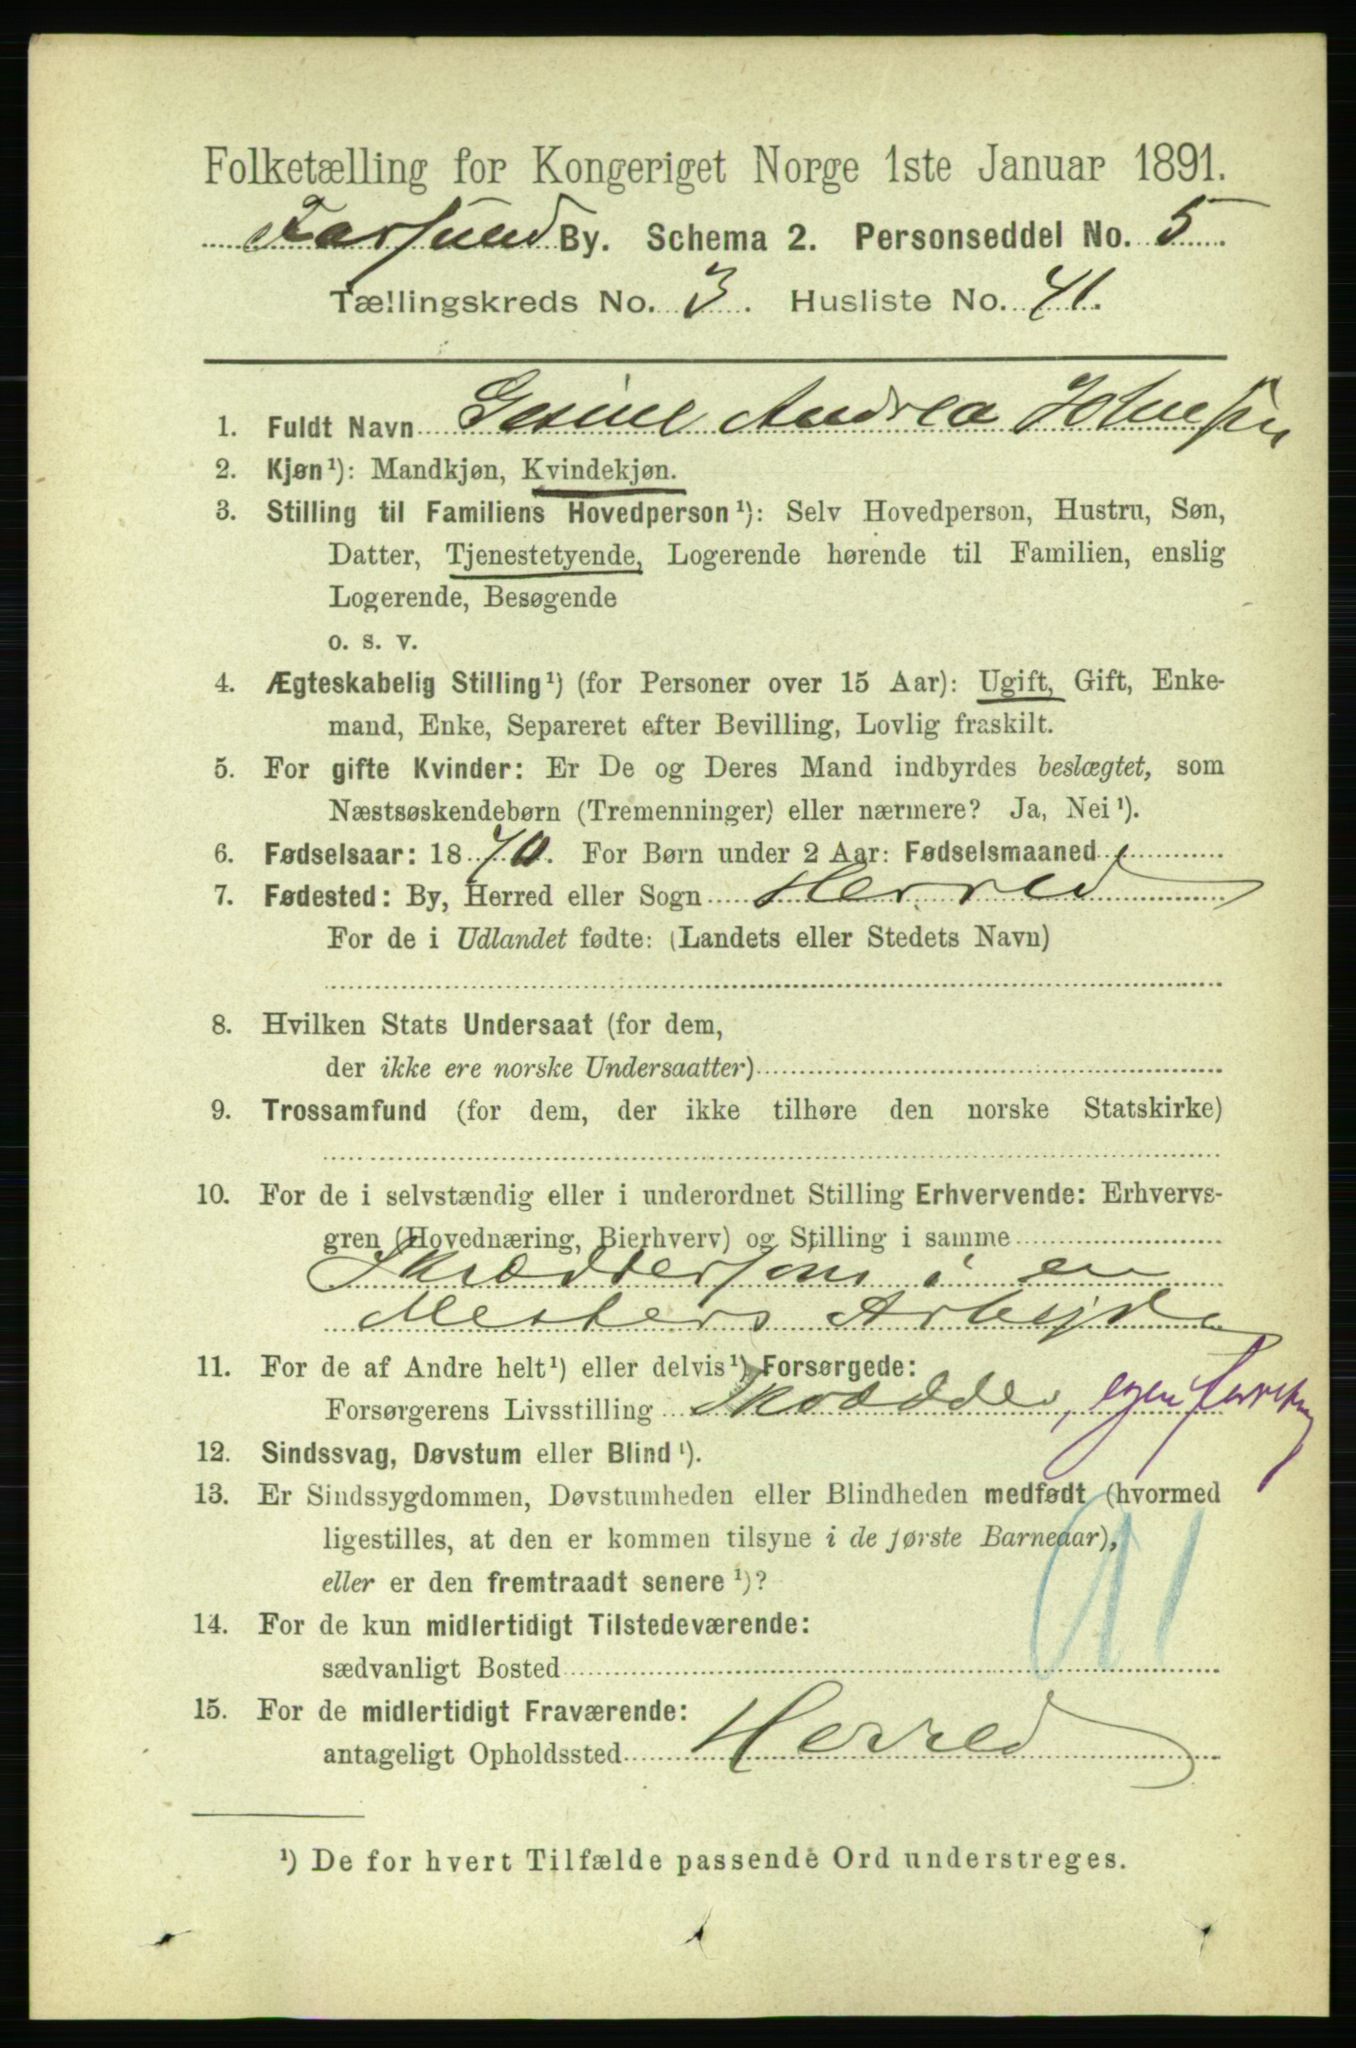 Folketælling for Kongeriget Norge 1ste Januar 1891.
Farsund By. Schema 2. Personseddel No. 5
Tællingskreds No. 3. Husliste No. 41.
1. Fuldt Navn Gesine Andrea Johnsen
2. Kjøn¹): Mandkjøn, Kvindekjøn.
3. Stilling til Familiens Hovedperson¹): Selv Hovedperson, Hustru, Søn,
Datter, Tjenestetyende, Logerende hørende til Familien, enslig
Logerende, Besøgende
o. s. v.
4. Ægteskabelig Stilling¹) (for Personer over 15 Aar): Ugift, Gift, Enke-
mand, Enke, Separeret efter Bevilling, Lovlig fraskilt.
5. For gifte Kvinder: Er De og Deres Mand indbyrdes beslægtet, som
Næstsøskendebørn (Tremenninger) eller nærmere? Ja, Nei¹).
6. Fødselsaar: 1870. For Børn under 2 Aar: Fødselsmaaned
7. Fødested: By, Herred eller Sogn Herred
For de i Udlandet fødte: (Landets eller Stedets Navn)
8. Hvilken Stats Undersaat (for dem,
der ikke ere norske Undersaatter)
9. Trossamfund (for dem, der ikke tilhøre den norske Statskirke)
10. For de i selvstændig eller i underordnet Stilling Erhvervende: Erhvervs-
gren (Hovednæring, Bierhverv) og Stilling i samme
i en
Mesters
11. For de af Andre helt¹) eller delvis¹) Forsørgede:
Forsørgerens Livsstilling Skrædder, egen
12. Sindssvag, Døvstum eller Blind¹).
13. Er Sindssygdommen, Døvstumheden eller Blindheden medfødt (hvormed
ligestilles, at den er kommen tilsyne i de første Barneaar),
eller er den fremtraadt senere¹)?
14. For de kun midlertidigt Tilstedeværende:
sædvanligt Bosted
15. For de midlertidigt Fraværende:
antageligt Opholdssted Herred
¹) De for hvert Tilfælde passende Ord understreges.